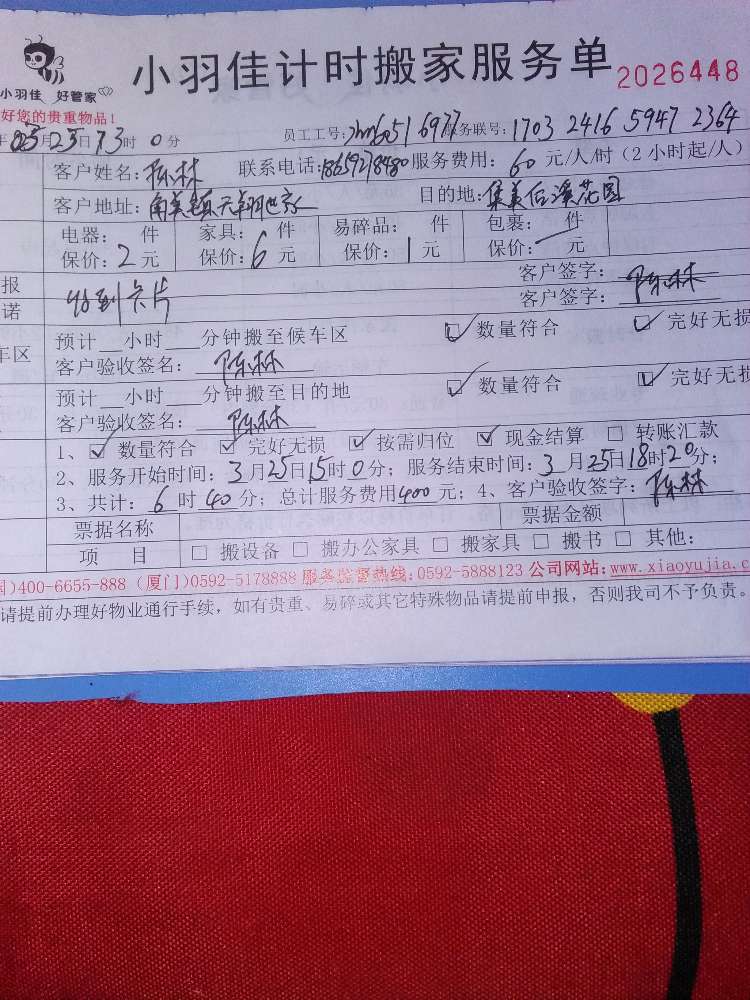 小羽佳计时搬家服务单 2026448
小羽佳 好管家
好您的贵重物品!
年 月25日 13时 0分 员工工号: 服务联号:1703 2416 5947 2364
客户姓名:陈林 联系电话:18659278480 服务费用: 60 元/人/时(2小时起/人)
客户地址: 目的地:集美后溪花园
电器: 件 家具: 件 易碎品: 件 包裹: 件
保价:2元 保价:6元 保价:1元 保价: 元
报 客户签字:陈林
诺 收到卡片 客户签字:陈林
预计__小时___分钟搬至候车区 ☑数量符合 ☑完好无损
车区 客户验收签名:陈林
预计__小时___分钟搬至目的地 ☑数量符合 ☑完好无损
客户验收签名:陈林
1、☑数量符合 ☑完好无损 ☑按需归位 ☑现金结算 □转账汇款
2、服务开始时间:3月25日15时0分;服务结束时间:3月25日18时20分;
3、共计:6时40分;总计服务费用400元;4、客户验收签字:陈林
票据名称 票据金额
项 目 □搬设备 □搬办公家具 □搬家具 □搬书 □其他:
国)400-6655-888 (厦门)0592-5178888 服务监督热线:0592-5888123 公司网站:www.xiaoyujia.c
请提前办理好物业通行手续,如有贵重、易碎或其它特殊物品请提前申报,否则我司不予负责。